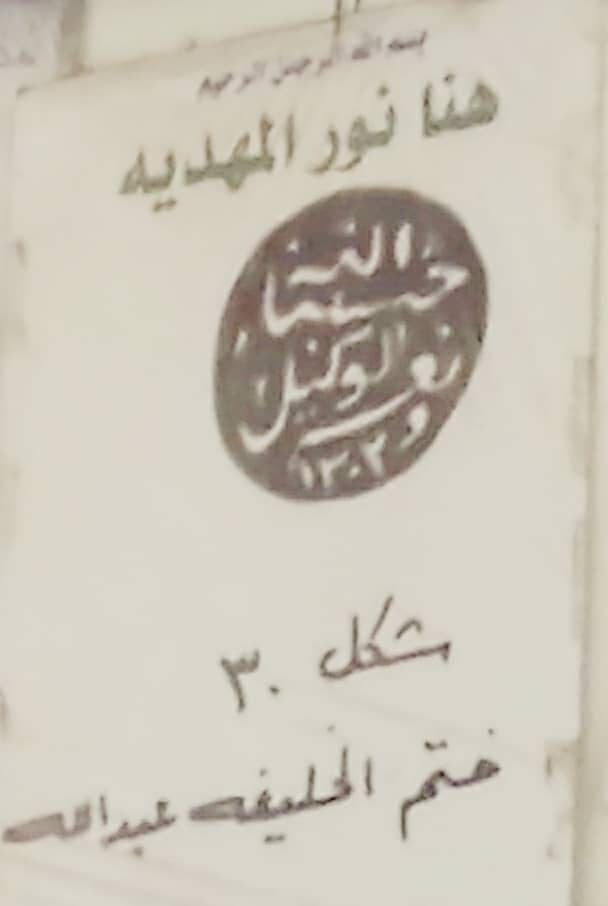 بسم الله الرحمن الرحيم
هنا نور المهديه
الله
حسبنا
ونعم الوكيل
١٣٠٢
شكل ٣٠
ختم الخليفه عبدالله